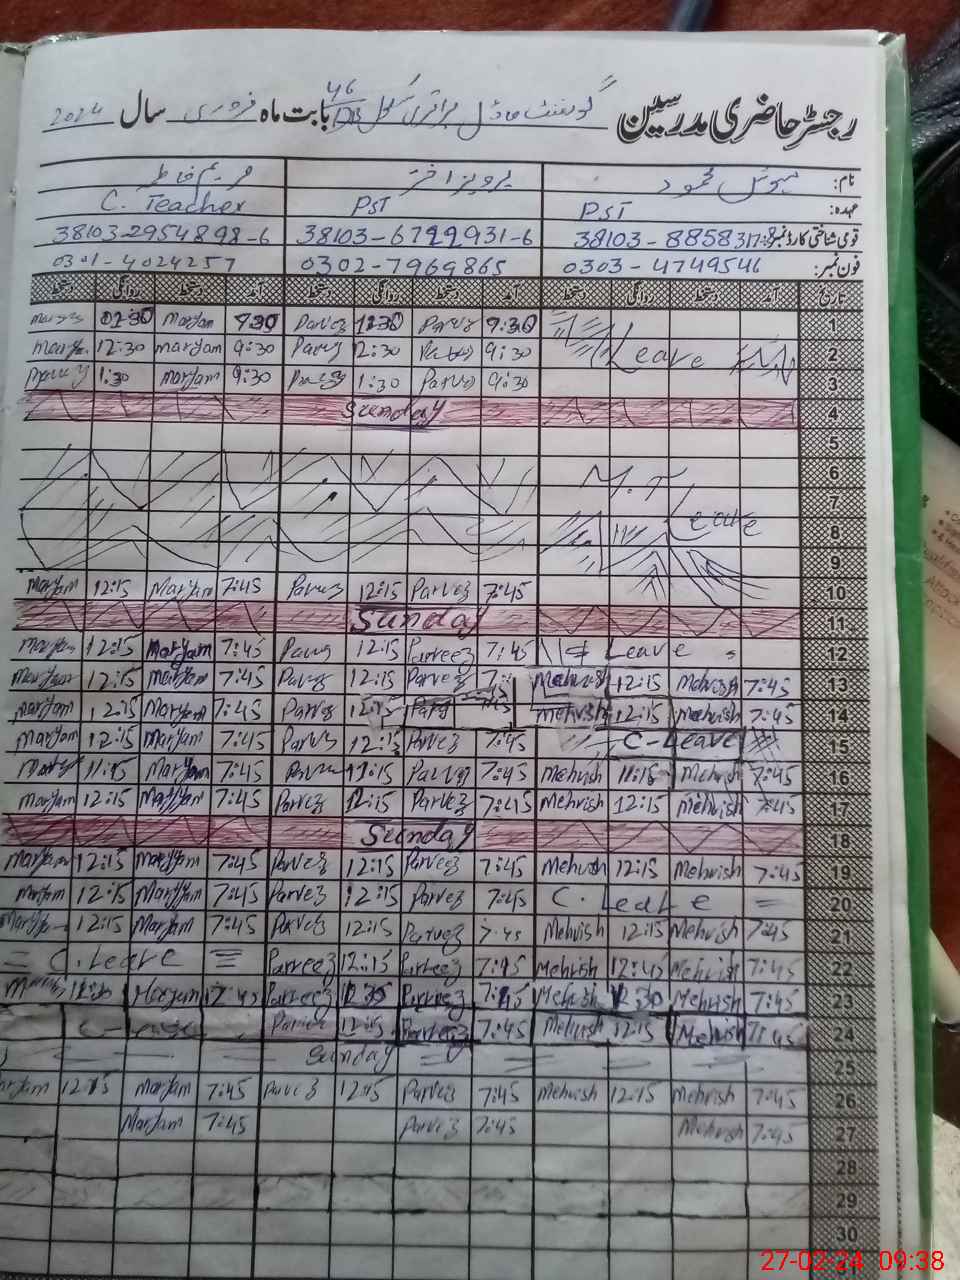 رجسٹر حاضری مدرسین گورنمنٹ ماڈل پرائمری سکول 46/DB بابت ماہ فروری سال 2024
نام: مہوش محمود پرویز اختر مریم فاطمہ
عہدہ: PST PST C. Teacher
قومی شناختی کارڈ نمبر: 38103-6799931-6 38103-2954898-6
فون نمبر: 0303-4749546 0302-7969865 0301-4024257
تاریخ آمد دستخط روانگی دستخط آمد دستخط روانگی دستخط آمد دستخط روانگی دستخط
Maryam 9:30 Parvez 12:30 Parvez 9:30 1
12:30 Maryam 9:30 12:30 9:30 Leave 2
1:30 Maryam 9:30 Parvez 1:30 Parvez 9:30 3
Sunday 4
5
6
M.T 7
Leave 8
9
Maryam 12:15 Maryam 7:45 Parvez 12:15 Parvez 7:45 10
Sunday 11
Maryam 12:15 Maryam 7:45 Parvez 12:15 Parveez 7:45 Leave 12
Maryam 12:15 Maryam 7:45 Parvez 12:15 Parvez Mehvish 12:15 Mehvish 7:45 13
Maryam 12:15 Maryam 7:45 Parvez 12:15 Mehvish 12:15 Mehvish 7:45 14
Maryam 12:15 Maryam 7:45 Parvez 12:15 Parvez 7:45 C-Leave 15
11:15 Maryam 7:45 11:15 Parvez 7:45 Mehrish 11:15 Mehrish 7:45 16
Maryam 12:15 Maryam 7:45 Parvez 12:15 Parvez 7:45 Mehrish 12:15 Mehvish 7:45 17
Sunday 18
Maryam 12:15 Maryam 7:45 Parvez 12:15 Parveez 7:45 Mehvish 12:15 Mehvish 7:45 19
Maryam 12:15 Maryam 7:45 Parvez 12:15 Parvez 7:45 C. Leave = 20
Maryam 12:15 Maryam 7:45 Parvez 12:15 Parvez 7:45 Mehvish 12:15 Mehvish 7:45 21
= C. Leave = Parveez 12:15 Parveez 7:45 Mehrish 12:45 Mehvish 7:45 22
Maryam 7:45 Parveez 12:30 Parveez 7:45 Mehrish 12:30 Mehrish 7:45 23
Parvez 12:15 Parveez 7:45 Mehvish 12:15 Mehvish 7:45 24
Sunday = = = 25
Maryam 12:15 Maryam 7:45 Parvez 12:15 Parvez 7:45 Mehvish 12:15 Mehrish 7:45 26
Maryam 7:45 Parvez 7:45 Mehvish 7:45 27
28
29
30
27-02-24 09:38